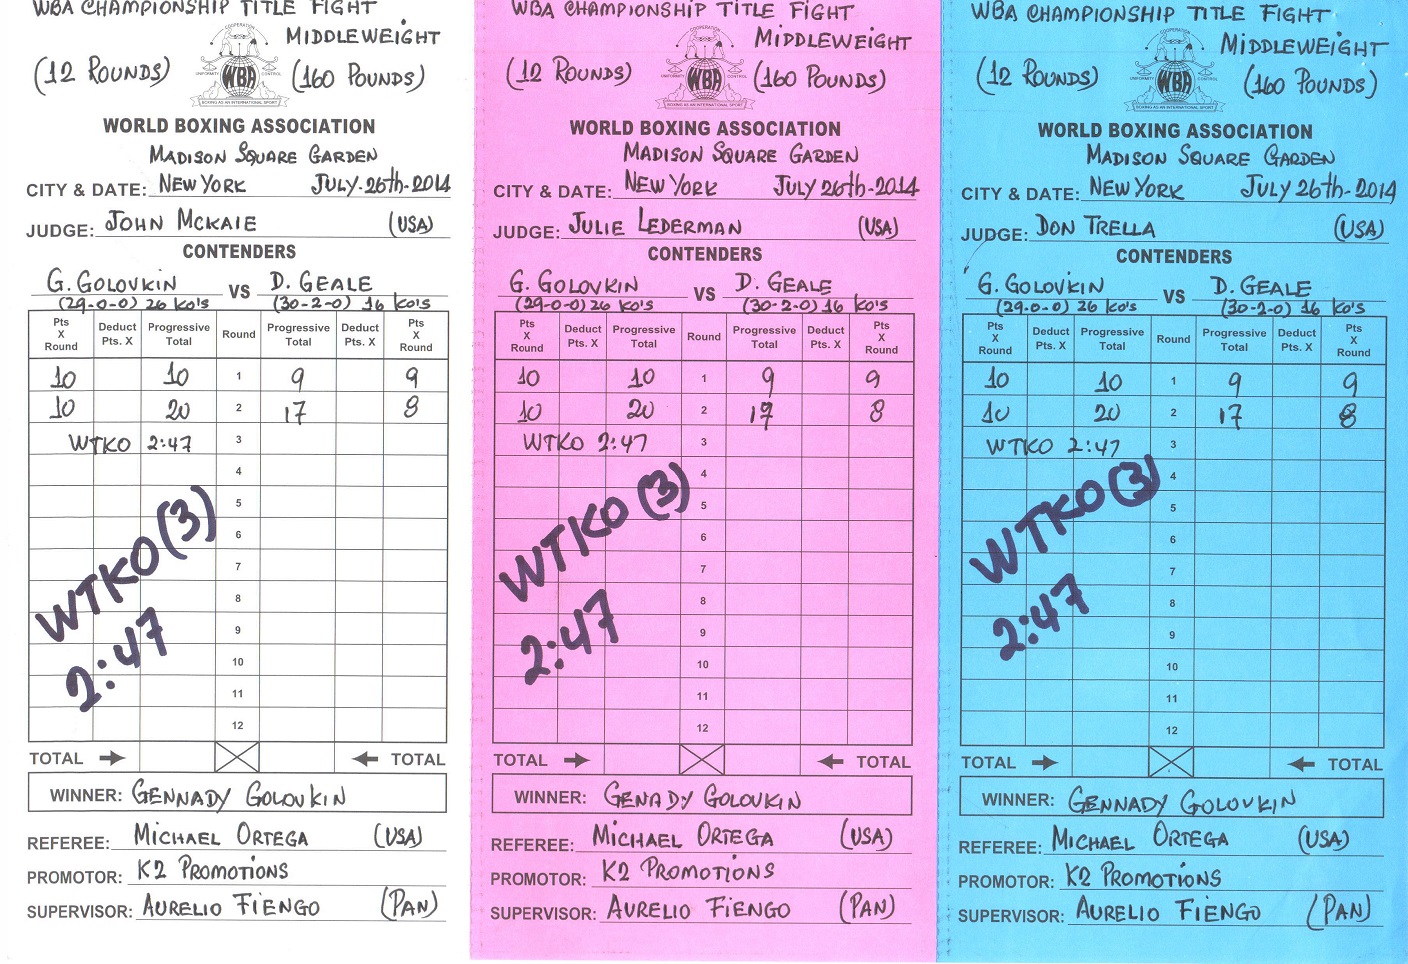 WBA CHAMPIONSHIP TITLE FIGHT
MIDDLEWEIGHT
(12 ROUNDS)
(160 POUNDS)
COOPERATION
UNIFORMITY
CONTROL
WBA
BOXING AS AN INTERNATIONAL SPORT
WORLD BOXING ASSOCIATION
MADISON SQUARE GARDEN
CITY & DATE: NEW YORK JULY-26th-2014
JUDGE: JOHN MCKAIE (USA)
CONTENDERS
G. GOLOVKIN VS D. GEALE
(29-0-0) 26 KO'S (30-2-0) 16 KO'S
Pts X Round Deduct Pts. X Progressive Total Round Progressive Total Deduct Pts. X Pts X Round
10 10 1 9 9
10 20 2 17 8
WTKO 2:47 3
4
5
6
7
8
9
10
11
12
WTKO (3)
2:47
TOTAL TOTAL
WINNER: GENNADY GOLOVKIN
REFEREE: MICHAEL ORTEGA (USA)
PROMOTOR: K2 PROMOTIONS
SUPERVISOR: AURELIO FIENGO (PAN)
WBA CHAMPIONSHIP TITLE FIGHT
MIDDLEWEIGHT
(12 ROUNDS)
(160 POUNDS)
COOPERATION
UNIFORMITY
CONTROL
WBA
BOXING AS AN INTERNATIONAL SPORT
WORLD BOXING ASSOCIATION
MADISON SQUARE GARDEN
CITY & DATE: NEW YORK JULY 26th-2014
JUDGE: JULIE LEDERMAN (USA)
CONTENDERS
G. GOLOVKIN VS D. GEALE
(29-0-0) 26 KO'S (30-2-0) 16 KO'S
Pts X Round Deduct Pts. X Progressive Total Round Progressive Total Deduct Pts. X Pts X Round
10 10 1 9 9
10 20 2 17 8
WTKO 2:47 3
4
5
6
7
8
9
10
11
12
WTKO (3)
2:47
TOTAL TOTAL
WINNER: GENADY GOLOVKIN
REFEREE: MICHAEL ORTEGA (USA)
PROMOTOR: K2 PROMOTIONS
SUPERVISOR: AURELIO FIENGO (PAN)
WBA CHAMPIONSHIP TITLE FIGHT
MIDDLEWEIGHT
(12 ROUNDS)
(160 POUNDS)
COOPERATION
UNIFORMITY
CONTROL
WBA
BOXING AS AN INTERNATIONAL SPORT
WORLD BOXING ASSOCIATION
MADISON SQUARE GARDEN
CITY & DATE: NEW YORK JULY 26th-2014
JUDGE: DON TRELLA (USA)
CONTENDERS
G. GOLOVKIN VS D. GEALE
(29-0-0) 26 KO's (30-2-0) 16 KO's
Pts X Round Deduct Pts. X Progressive Total Round Progressive Total Deduct Pts. X Pts X Round
10 10 1 9 9
10 20 2 17 8
WTKO 2:47 3
4
5
6
7
8
9
10
11
12
WTKO (3)
2:47
TOTAL TOTAL
WINNER: GENNADY GOLOVKIN
REFEREE: MICHAEL ORTEGA (USA)
PROMOTOR: K2 PROMOTIONS
SUPERVISOR: AURELIO FIENGO (PAN)